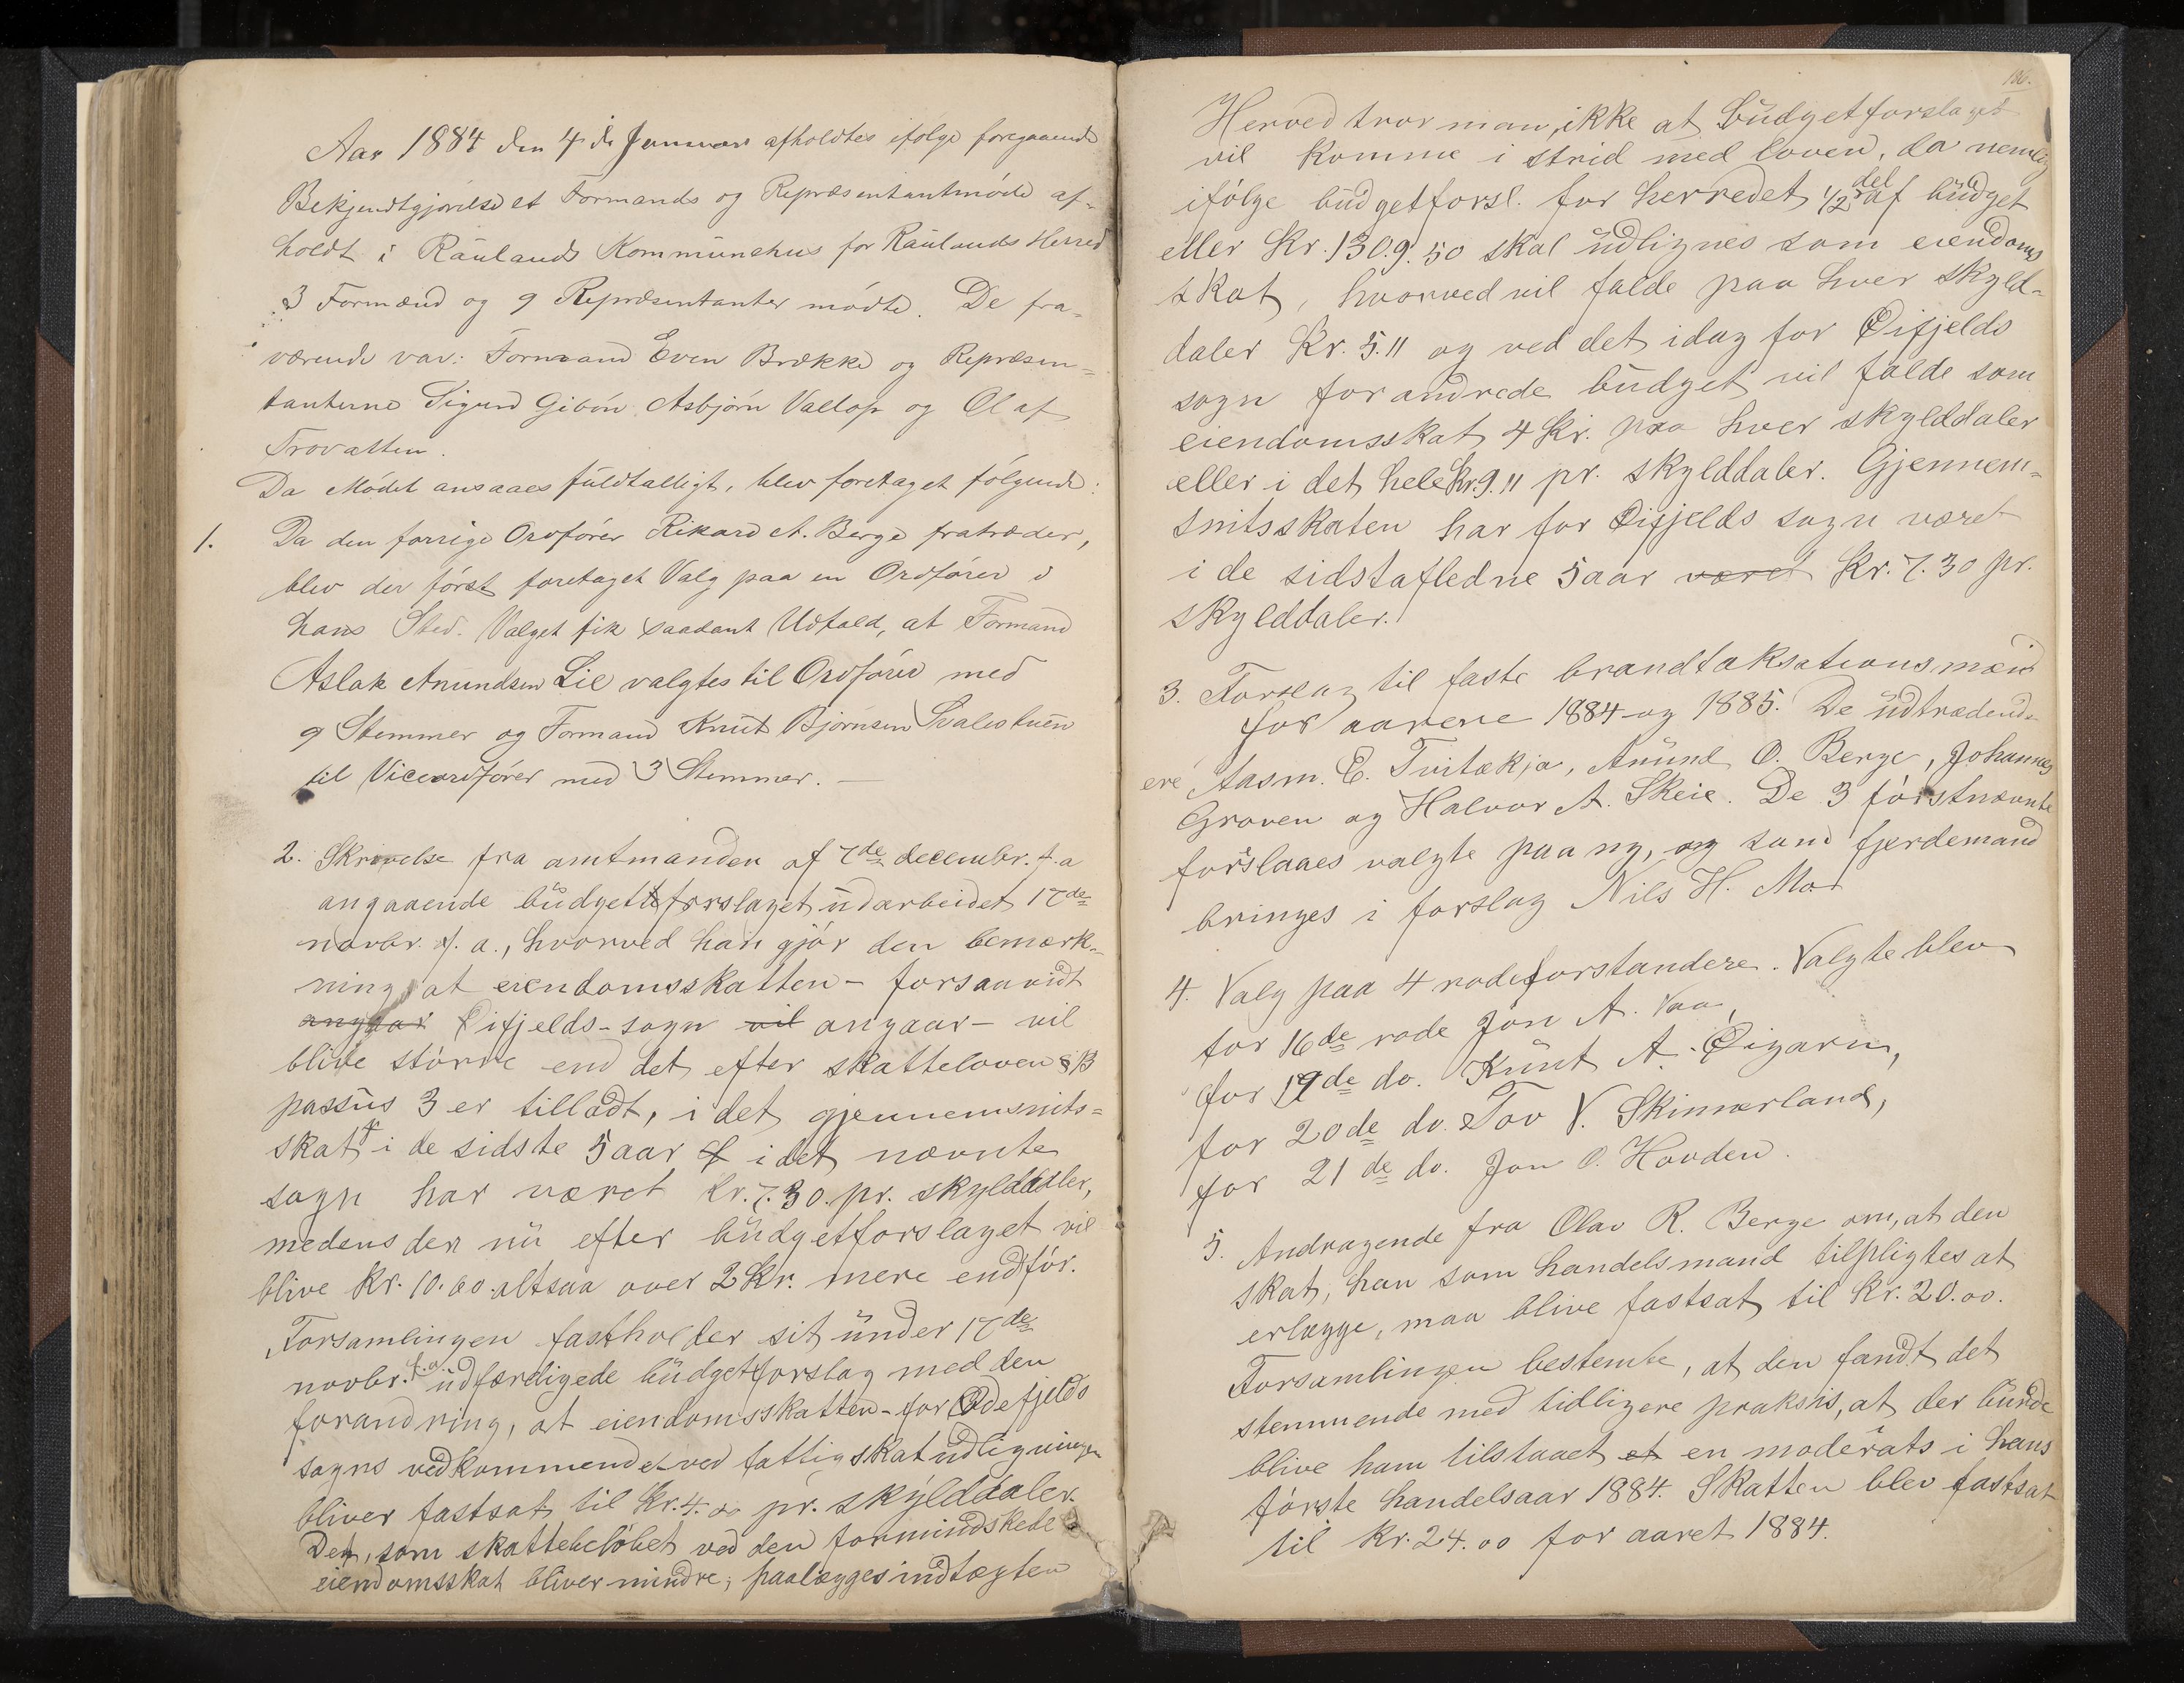 Aar 1884 den 4de Januar afholdtes ifølge foregaaende
Bekjendtgjørelse et Formands og Repræsentantmøde af-
holdt i Raulands Kommunehus for Raulands Herred
3 Formænd og 9 Repræsentanter mødte. De fra-
værende var: Formand Even Brække og Repræsen-
tanterne Sigurd Gibøn, Asbjørn Vallop og Olaf
Trovatten.
Da Mødet ansaaes fuldtalligt, blev foretaget følgende:
1. Da den forrige Ordfører Rikard A. Berge fratræder,
blev der først foretaget Valg paa en Ordfører i
hans Sted. Valget fik saadant Udfald, at Formand
Aslak Anundsen Lie valgtes til Ordfører med
9 Stemmer og Formand Knut Bjørnsen Svalestuen
til Viceordfører med 3 Stemmer. —
2. Skrivelse fra amtmanden af 7de decembr. f. a
angaaende budgetforslaget udarbeidet 17de
novbr. f. a., hvorved han gjør den bemærk-
ning, at eiendomsskatten - forsaavidt
angaar Øifjelds-sogn vil angaar - vil
blive større end det efter skatteloven §13
passus 3 er tilladt, i det gjennemsnits-
skat i de sidste 5 aar i det nævnte
sogn har været kr. 7.30. pr. skylddaler,
medens der nu efter budgetforslaget vil
blive kr. 10.60. altsaa over 2 kr. mere end før.
Forsamlingen fastholder sit under 17de
novbr. f.a. udfærdigede budgetforslag med den
forandring, at eiendomsskatten - for Ødefjelds
sogns vedkommende - ved fattigskatudligningen
bliver fastsat til kr. 4.00 pr. skylddaler.
Det, som skattebeløbet ved den formindskede
eiendomsskat bliver mindre, paalægges indtægten
186.
Herved tror man, ikke at budgetforslaget
vil komme i strid med loven, da nemlig
ifølge budgetforsl. for herredet 1/2 del af budget
eller kr. 1309.50 skal udlignes som eiendoms
skat, hvorved vil falde paa hver skyld-
daler kr. 5.11 og ved det idag for Øifjelds
sogn forandrede budget vil falde som
eiendomsskat 4 kr. paa hver skylddaler
eller i det hele kr. 9.11 pr. skylddaler. Gjennem-
snitsskaten har for Øifjelds sogn været
i de sidstafledne 5 aar været kr. 7.30 pr.
skylddaler.
3. Forslag til faste brandtaksationsmænd
for aarene 1884 og 1885. De udtrædende
ere Aasm. E. Tvitækja, Anund O. Berge, Johannes
Groven og Halvor A. Skeie. De 3 førstnævnte
forslaaes valgte paa ny, og som fjerdemand
bringes i forslag Nils H. Mo.
4. Valg paa 4 rodeforstandere. Valgte blev
for 16de rode Jon A. Vaa,
for 19de do. Knut A. Øigarn,
for 20de do. Tov V. Skinnerland,
for 21de do. Jon O. Hovden.
5. Andragende fra Olav R. Berge om, at den
skat, han som handelsmand tilpligtes at
erlægge, maa blive fastsat til kr. 20.00.
Forsamlingen bestemte, at den fandt det
stemmende med tidligere praksis, at der burde
blive ham tilstaaet et en moderats i hans
første handelsaar 1884. Skatten blev fastsat
til kr. 24.00 for aaret 1884.